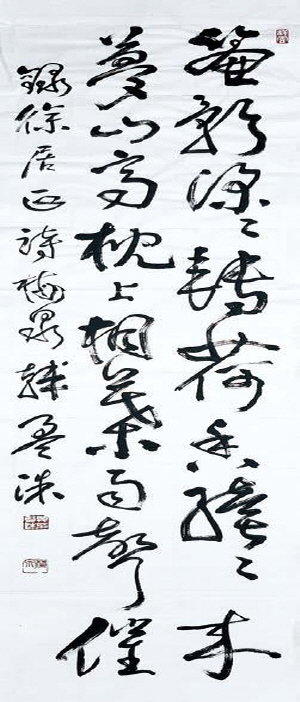 簾影深〻轉荷香續〻來
夢回高枕上桐葉雨聲催
錄徐居正詩梅韓洙